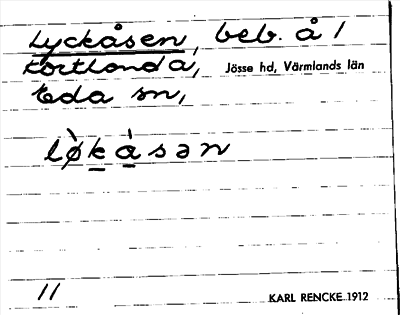 Lyckåsen, beb. å 1
Kortlanda, Jösse hd, Värmlands län
Eda sn,
lø̀kåsən
11
KARL RENCKE 1912